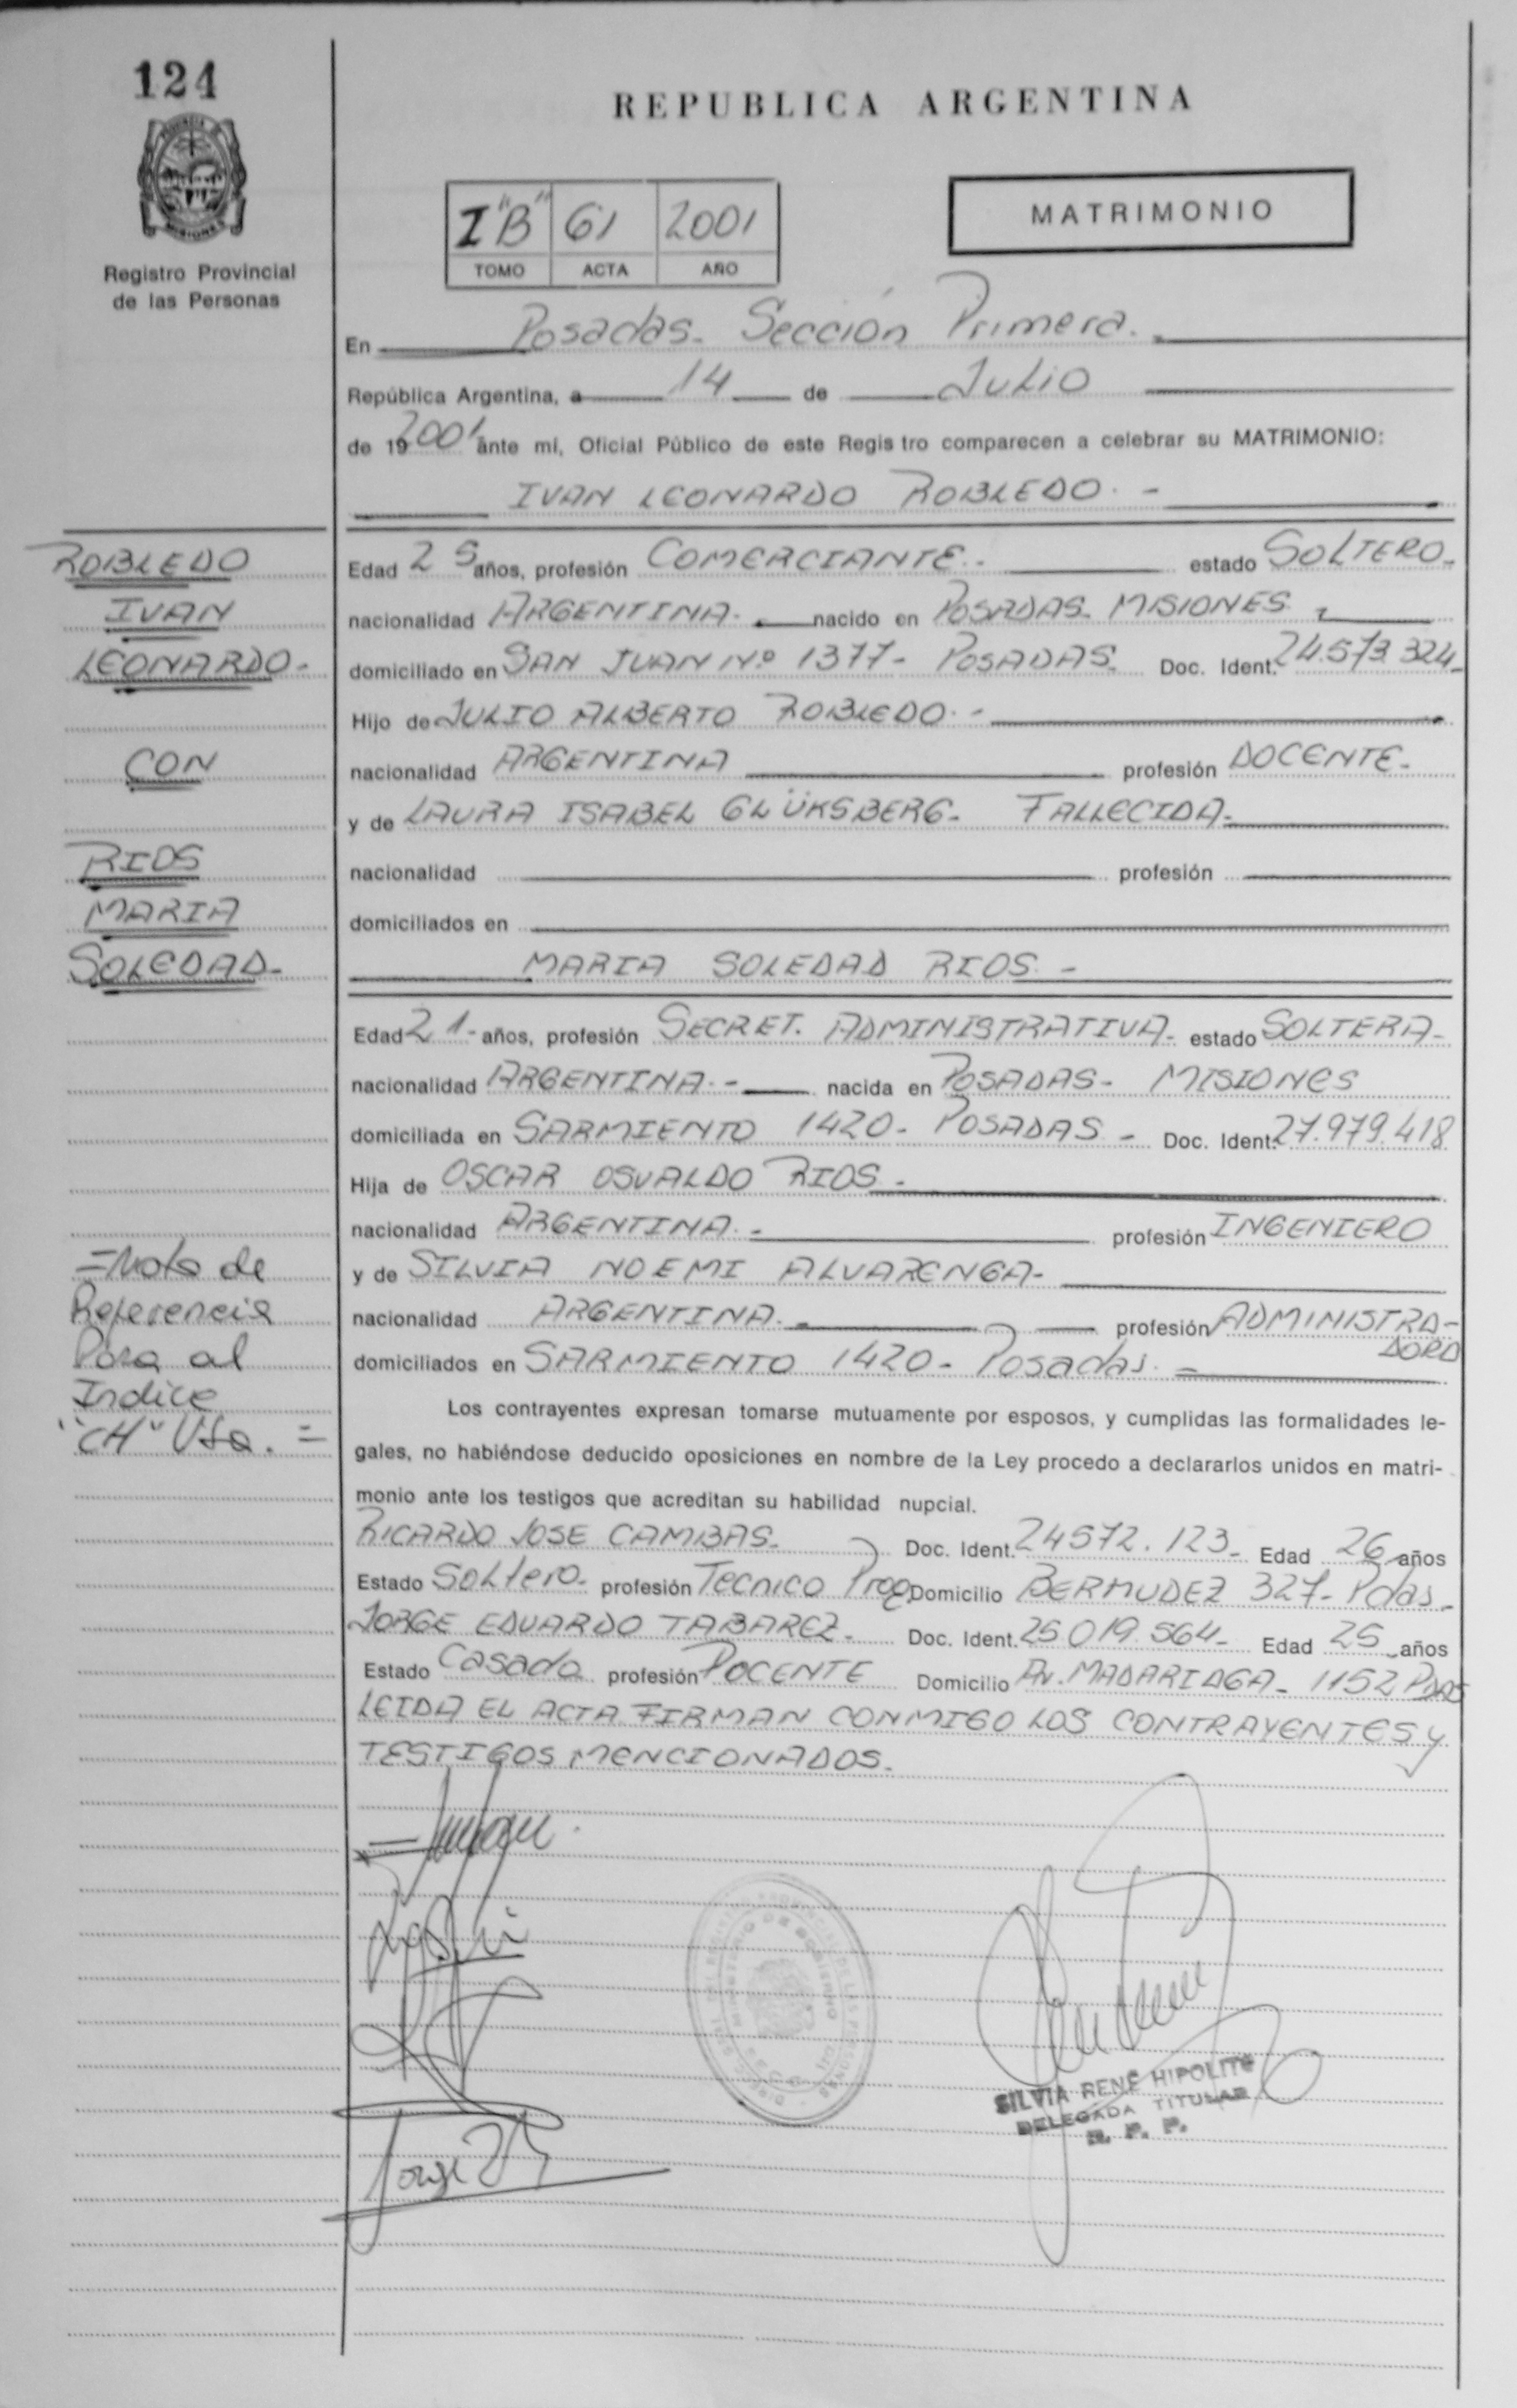 124
REPUBLICA ARGENTINA
MISIONES
Registro Provincial
de las Personas
I "B" 61 2001
TOMO ACTA AÑO
MATRIMONIO
En Posadas - Sección Primera.-
República Argentina, a 14 de Julio
de 19 2001 ante mi, Oficial Público de este Regis tro comparecen a celebrar su MATRIMONIO:
IVAN LEONARDO ROBLEDO.-
ROBLEDO
IVAN
LEONARDO-
CON
RIOS
MARIA
SOLEDAD-
Edad 25 años, profesión COMERCIANTE.- estado SOLTERO-
nacionalidad ARGENTINA.- nacido en POSADAS- MISIONES
domiciliado en SAN JUAN Nº 1377- POSADAS- Doc. Ident. 24.573.324-
Hijo de JULIO ALBERTO ROBLEDO.-
nacionalidad ARGENTINA profesión DOCENTE-
y de LAURA ISABEL GLÜKSBERG- FALLECIDA-
nacionalidad profesión
domiciliados en
MARIA SOLEDAD RIOS.-
Edad 21- años, profesión SECRET. ADMINISTRATIVA- estado SOLTERA-
nacionalidad ARGENTINA.- nacida en POSADAS- MISIONES
domiciliada en SARMIENTO 1420- POSADAS- Doc. Ident. 27.979.418
Hija de OSCAR OSVALDO RIOS-
nacionalidad ARGENTINA.- profesión INGENIERO
y de SILVIA NOEMI ALVARENGA-
nacionalidad ARGENTINA.- profesión ADMINISTRA-
DORA
domiciliados en SARMIENTO 1420- Posadas.-
=Nota de
Referencia
Pasa al
Indice
"CH" Vta. =
Los contrayentes expresan tomarse mutuamente por esposos, y cumplidas las formalidades le-
gales, no habiéndose deducido oposiciones en nombre de la Ley procedo a declararlos unidos en matri-
monio ante los testigos que acreditan su habilidad nupcial.
RICARDO JOSE CAMBAS- Doc. Ident. 24572.123- Edad 26 años
Estado Soltero- profesión Tecnico Prog. Domicilio BERMUDEZ 327- Pdas-
JORGE EDUARDO TABAREZ- Doc. Ident. 25.019.564- Edad 25 años
Estado Casado profesión DOCENTE Domicilio AV. MADARIAGA- 1152 PDAS
LEIDA EL ACTA FIRMAN CONMIGO LOS CONTRAYENTES y
TESTIGOS MENCIONADOS-
SILVIA RENE HIPOLITO
DELEGADA TITULAR
R. P. P.